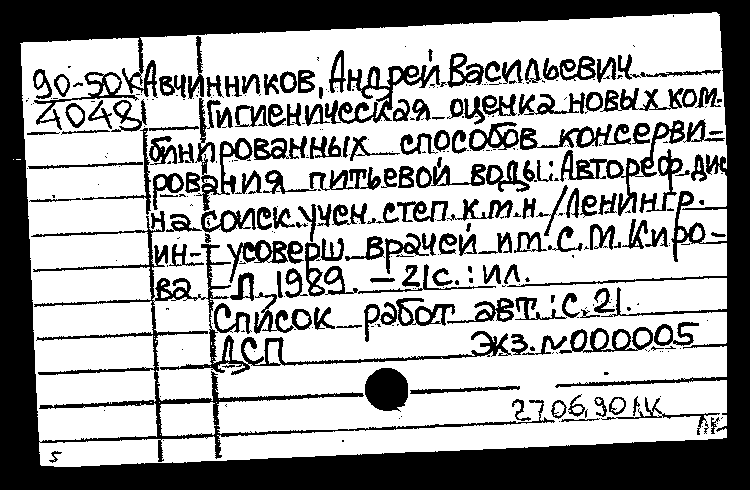 90-50к Авчинников, Андрей Васильевич
4048 Гигиеническая оценка новых ком-
бинированных способов консерви-
рования питьевой воды: Автореф. дис
на соиск. учен. степ. к.м.н. /Ленингр.
ин-т усоверш. врачей им. С.М. Киро-
ва. -Л., 1989. - 21с.: ил.
Список работ авт.: с. 21.
ДСП Экз. №000005
27.06.90
ЛК
5